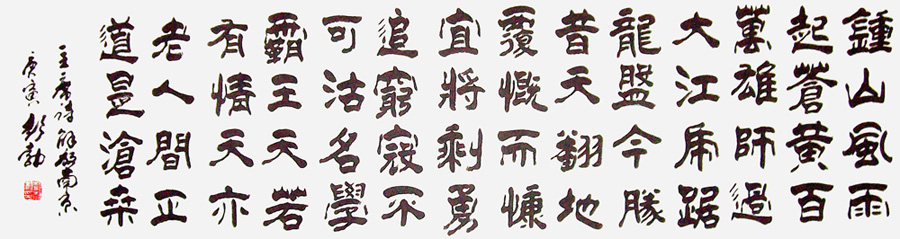 鍾山風雨
起蒼黃百
萬雄師過
大江虎踞
龍盤今勝
昔天翻地
覆慨而慷
宜將剩勇
追窮寇不
可沽名學
霸王天若
有情天亦
老人間正
道是滄桑
主席诗解放南京
庚寅